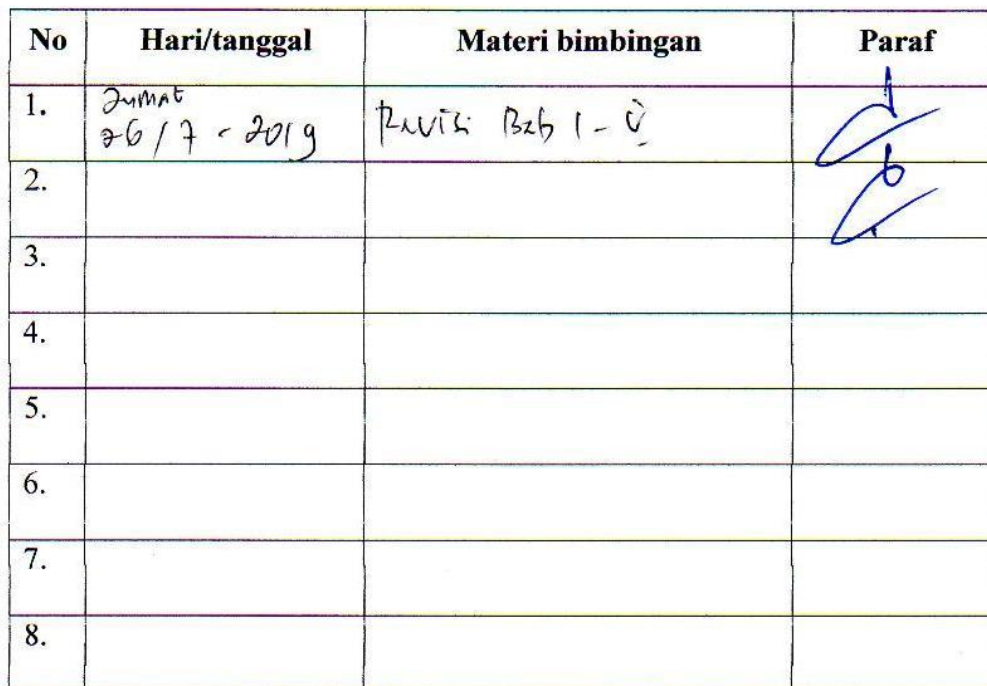 No Hari/tanggal Materi bimbingan Paraf
1. Jumat
26/7-2019 Revisi Bab 1 - V
2.
3.
4.
5.
6.
7.
8.